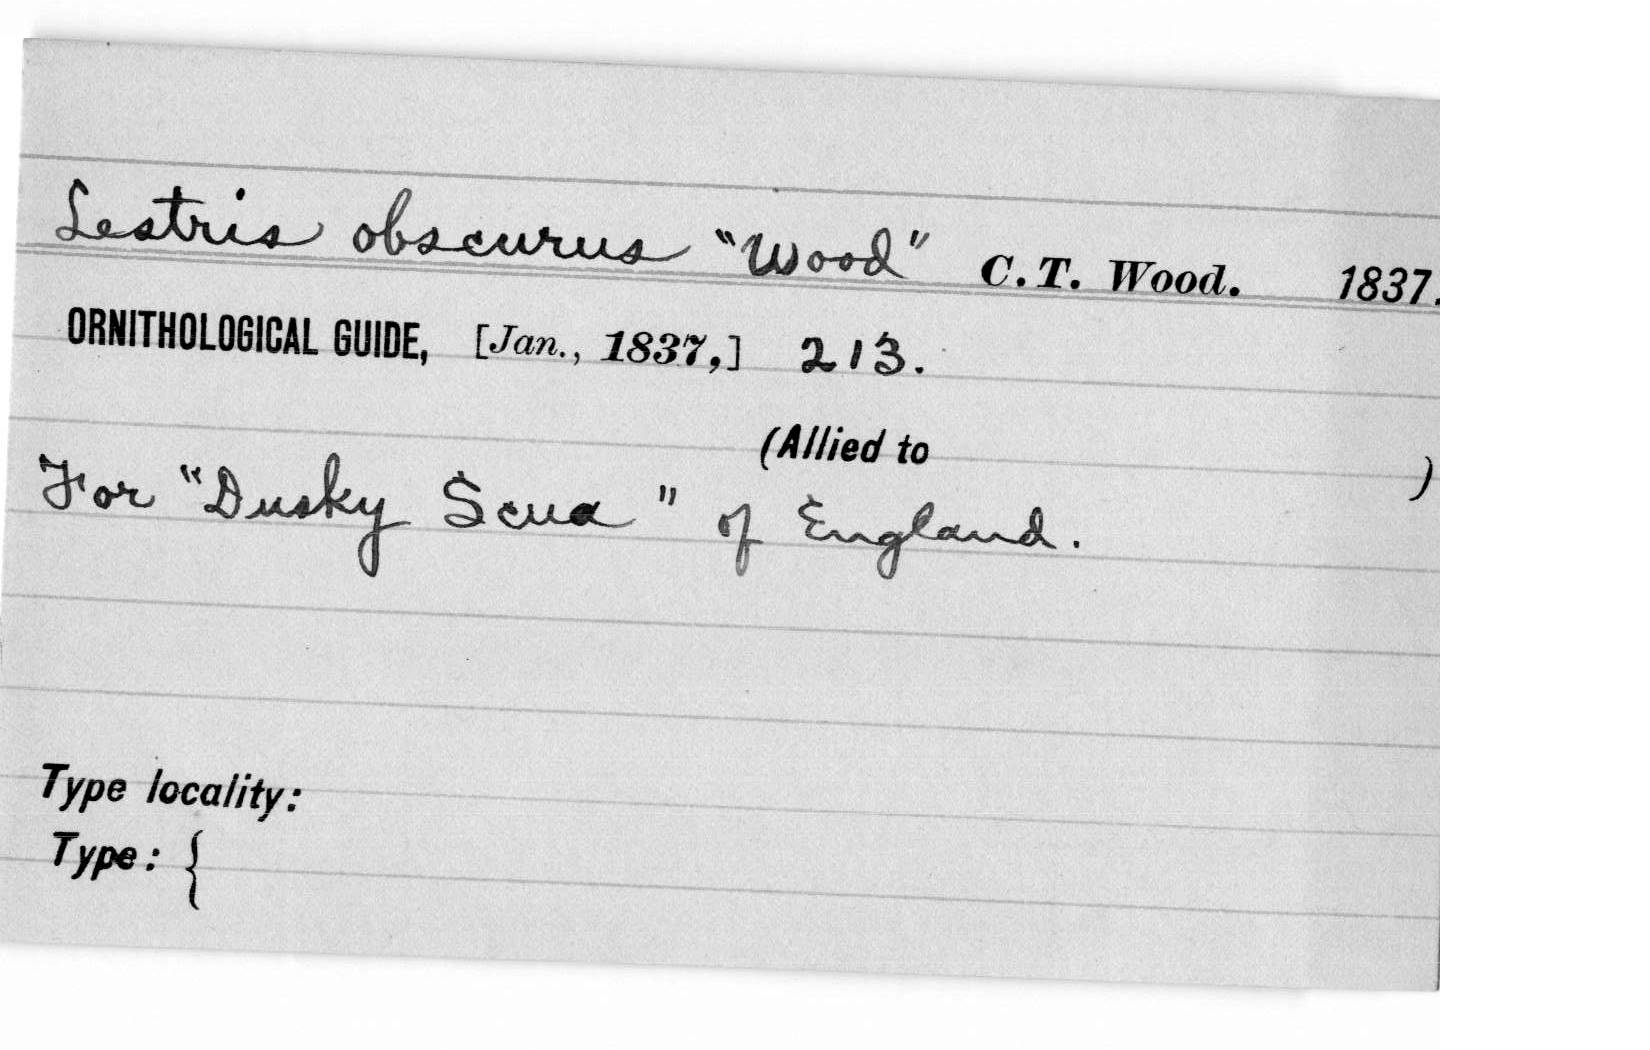 Lestris obscurus "Wood" C.T. Wood. 1837.
ORNITHOLOGICAL GUIDE, [Jan., 1837,] 213.
(Allied to )
For "Dusky Scua" of England.
Type locality:
Type: {